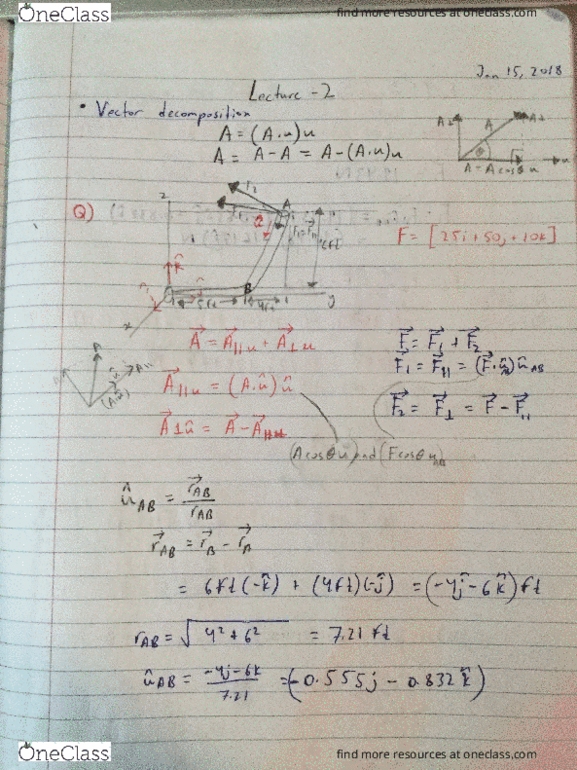 OneClass
find more resources at oneclass.com
Jan 15, 2018
Lecture - 2
• Vector decomposition
A = (A.u)u
A = A - A = A - (A.u)u
A
A - A cosθ u
Q)
z
F₂
A
6ft
F = [25i + 50j + 10k]
B
5ft
4ft
y
x
A = A∥u + A⊥u
F = F₁ + F₂
F₁ = F∥ = (F.û)û AB
A∥u = (A.û)û
F₂ = F⊥ = F - F∥
A⊥û = A - A∥u
(A cosθ u) and (F cosθ u AB)
û AB = r AB / r AB
r AB = r B - r A
= 6ft(-k̂) + (4ft)(-ĵ) = (-4ĵ - 6k̂) ft
r AB = √4² + 6² = 7.21 ft
û AB = -4j - 6k / 7.21 = (-0.555j - 0.832k̂)
OneClass
find more resources at oneclass.com